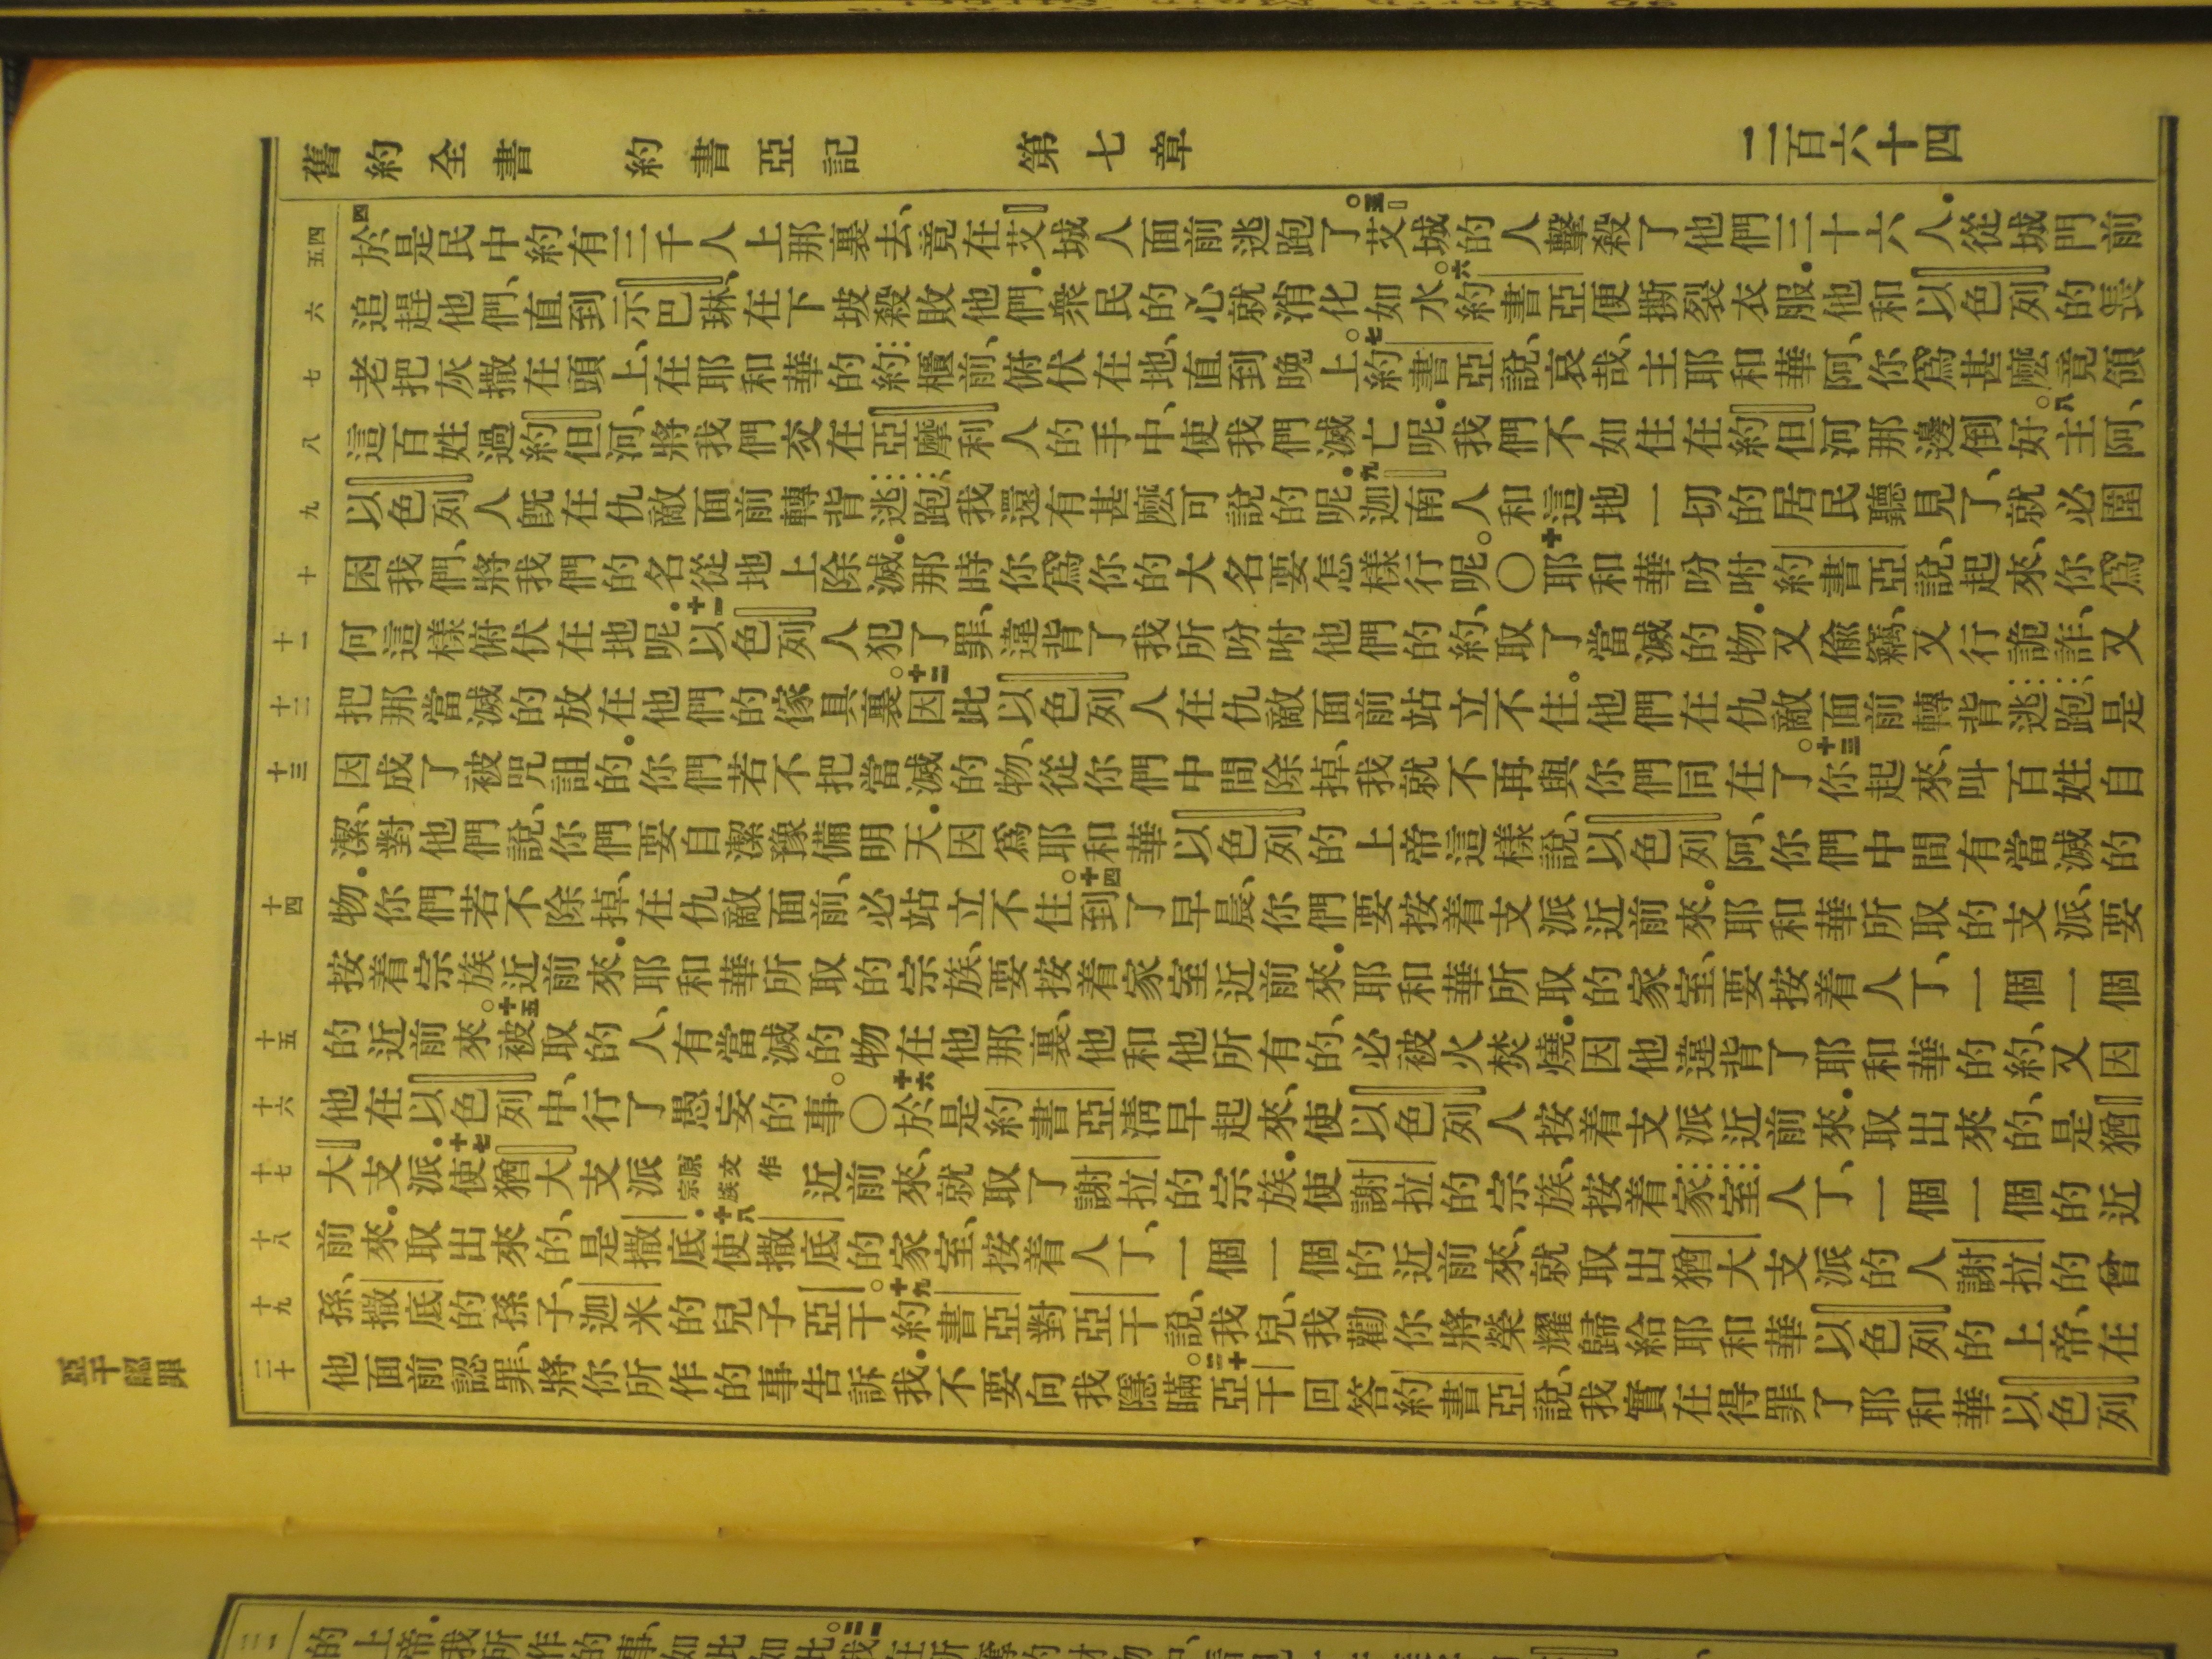 舊約全書 約書亞記 第七章 二百六十四
五四 六 七 八 九 十 十一 十二 十三 十四 十五 十六 十七 十八 十九 二十
四於是民中約有三千人上那裏去、竟在艾城人面前逃跑了。五艾城的人擊殺了他們三十六人.從城門前
追趕他們、直到示巴琳、在下坡殺敗他們.衆民的心就消化如水。六約書亞便撕裂衣服.他和以色列的長
老把灰撒在頭上、在耶和華的約櫃前、俯伏在地、直到晚上。七約書亞說、哀哉、主耶和華阿、你爲甚麼竟領
這百姓過約但河、將我們交在亞摩利人的手中、使我們滅亡呢.我們不如住在約但河那邊倒好。八主阿、
以色列人旣在仇敵面前轉背逃跑、我還有甚麼可說的呢.九迦南人和這地一切的居民聽見了、就必圍
困我們、將我們的名從地上除滅.那時你爲你的大名要怎樣行呢。〇十耶和華吩咐約書亞說、起來、你爲
何這樣俯伏在地呢.十一以色列人犯了罪、違背了我所吩咐他們的約、取了當滅的物.又偷竊、又行詭詐、又
把那當滅的放在他們的傢具裏。十二因此以色列人在仇敵面前站立不住.他們在仇敵面前轉背逃跑、是
因成了被咒詛的.你們若不把當滅的物、從你們中間除掉、我就不再與你們同在了。十三你起來、叫百姓自
潔、對他們說、你們要自潔豫備明天.因爲耶和華以色列的上帝這樣說、以色列阿、你們中間有當滅的
物.你們若不除掉、在仇敵面前、必站立不住。十四到了早晨、你們要按着支派近前來.耶和華所取的支派、要
按着宗族近前來.耶和華所取的宗族、要按着家室近前來.耶和華所取的家室、要按着人丁、一個一個
的近前來。十五被取的人、有當滅的物在他那裏、他和他所有的、必被火焚燒.因他違背了耶和華的約、又因
他在以色列中、行了愚妄的事。〇十六於是約書亞淸早起來、使以色列人按着支派近前來.取出來的、是猶
大支派.十七使猶大支派宗族原文作近前來、就取了謝拉的宗族.使謝拉的宗族、按着家室人丁、一個一個的近
前來.取出來的、是撒底.十八使撒底的家室、按着人丁、一個一個的近前來、就取出猶大支派的人謝拉的曾
孫、撒底的孫子、迦米的兒子亞干。十九約書亞對亞干說、我兒、我勸你將榮耀歸給耶和華以色列的上帝、在
他面前認罪、將你所作的事告訴我.不要向我隱瞞。二十亞干回答約書亞說、我實在得罪了耶和華以色列
亞干認罪
的上帝.我所作的事、如此如此。